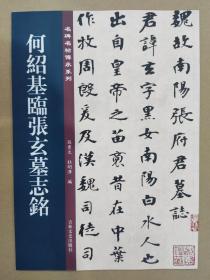 名碑名帖傳承系列
何紹基臨張玄墓志銘
吉林文史出版社
魏故南陽張府君墓誌
君諱玄字黑女南陽白水人也
出自皇帝之苗裔昔在中葉
作牧周殷爰及漢魏司徒司